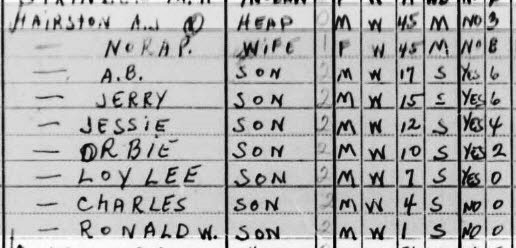 HAIRSTON A.J. HEAD 0 M W 45 M NO 3
— NORA P. WIFE 1 F W 45 M NO 8
— A.B. SON 2 M W 17 S YES 6
— JERRY SON 2 M W 15 S YES 6
— JESSIE SON 2 M W 12 S YES 4
— ORBIE SON 2 M W 10 S YES 2
— LOY LEE SON 2 M W 7 S YES 0
— CHARLES SON 2 M W 4 S NO 0
— RONALD W. SON 2 M W 1 S NO 0